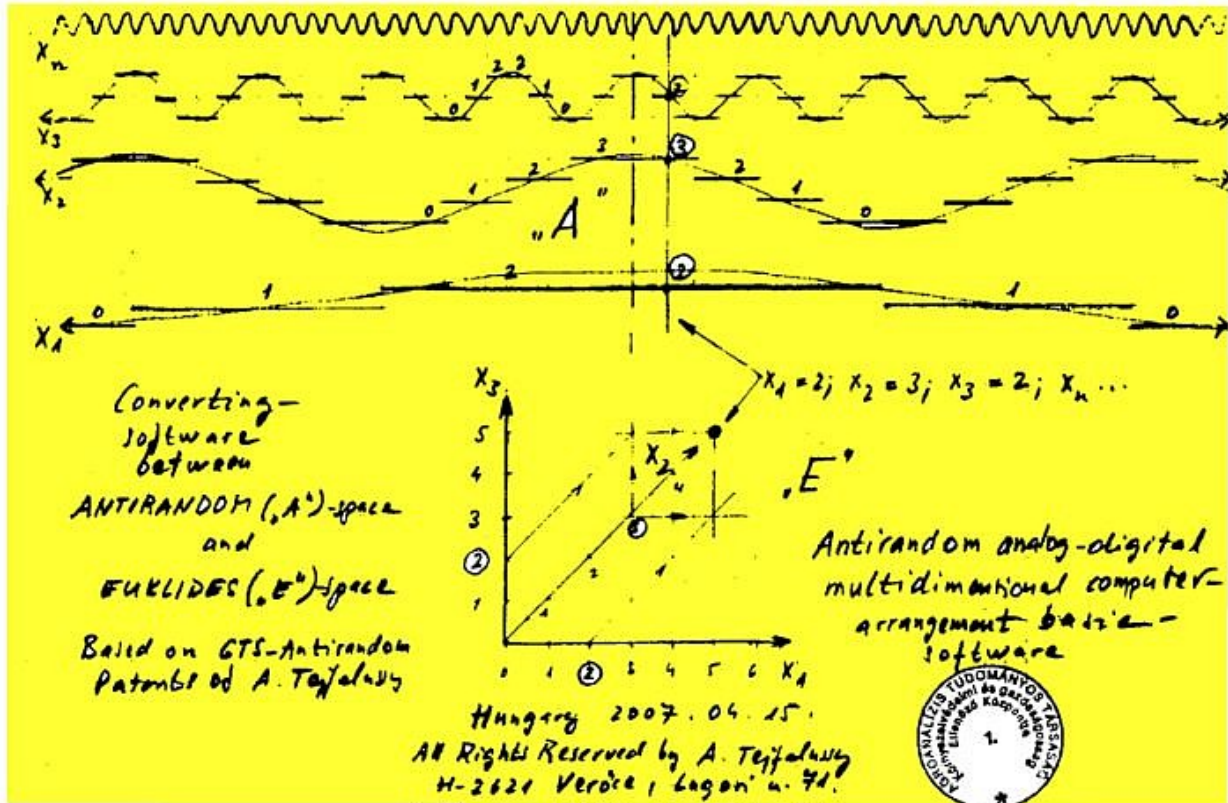 Xn
2 2
1 1 2
0 0
X3
3 3
X2 2 2
1 1
0 0
„A"
2 2
1 1
0 0
X1
X1 = 2; X2 = 3; X3 = 2; Xn ...
Converting-
software
between
ANTIRANDOM („A")-space
and
EUKLIDES („E")-space
Based on GTS-Antirandom
Patents of A. Tejfalussy
X3
5
4
3
2
1
X2
4
3
2
1
1
„E"
0 1 2 3 4 5 6 X1
Antirandom analog-digital
multidimentional computer-
arrangement basic-
software
Hungary 2007.04.15.
All Rights Reserved by A. Tejfalussy
H-2621 Verőce, Lugosi u. 71.
AGROANALÍZIS TUDOMÁNYOS TÁRSASÁG
Környezetvédelmi és gazdaságossági
Ellenőrző Központja
1.
*